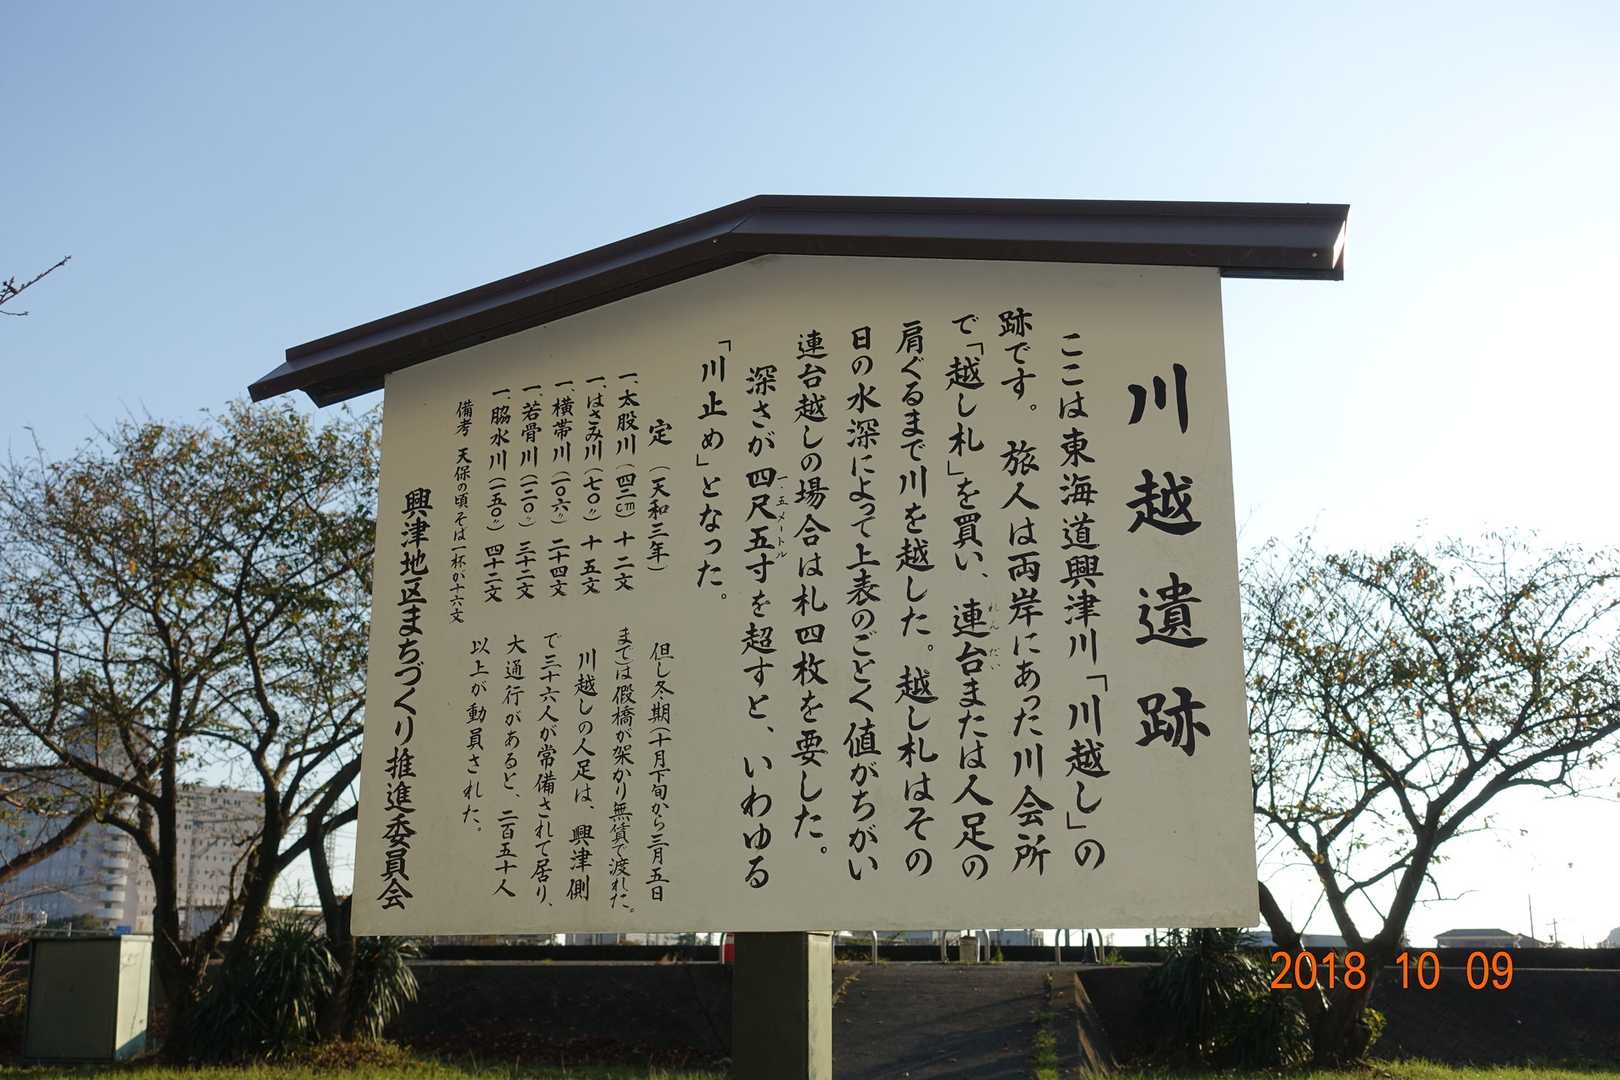 川越遺跡
ここは東海道興津川「川越し」の
跡です。旅人は両岸にあった川会所
で「越し札」を買い、連台または人足の
れんだい
肩ぐるまで川を越した。越し札はその
日の水深によって上表のごとく値がちがい
連台越しの場合は札四枚を要した。
深さが四尺五寸を超すと、いわゆる
一・五メートル
「川止め」となった。
定(天和三年)
一、太股川(四二cm)十二文
一、はさみ川(七〇〃)十五文
一、横帯川(一〇六〃)二十四文
一、若骨川(一二〇〃)三十二文
一、脇水川(一五〇〃)四十二文
備考 天保の頃そば一杯が十六文
但し冬期(十月下旬から三月五日
まで)は假橋が架かり無賃で渡れた。
川越しの人足は、興津側
で三十六人が常備されて居り、
大通行があると、二百五十人
以上が動員された。
興津地区まちづくり推進委員会
2018 10 09